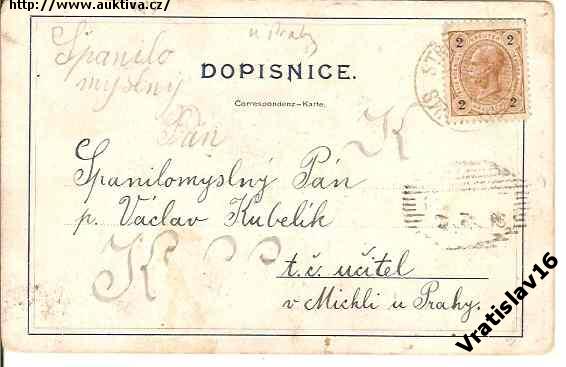 http://www.auktiva.cz/
u Prahy
Spanilo
myslný
DOPISNICE.
Correspondenz-Karte.
2 2
2 2
Pán
K
Spanilomyslný Pán
p. Václav Kubelík
K
t. č. učitel
v Michli u Prahy.
Vratislav16